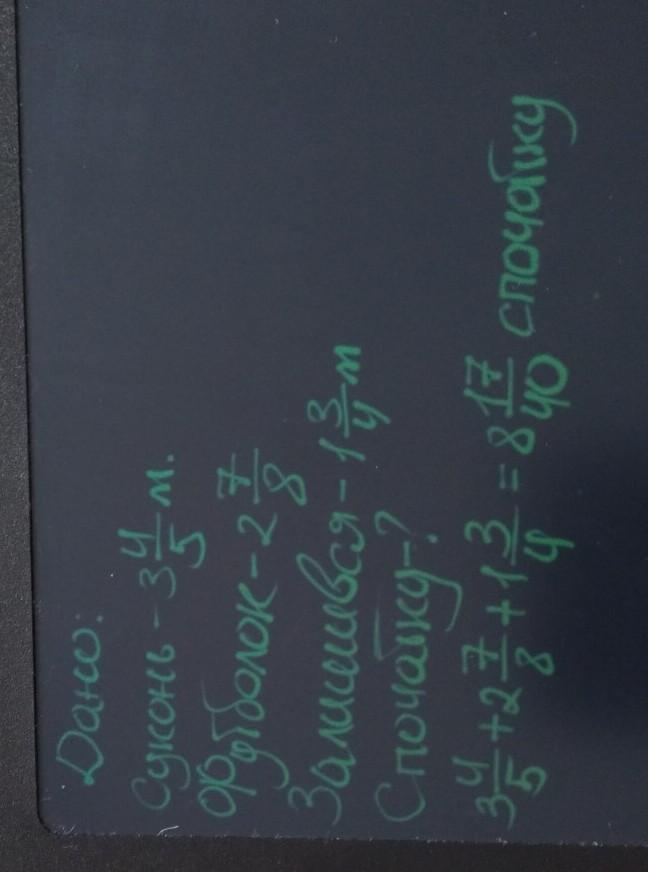 Дано:
Суконь - 3 4/5 м.
Футболок - 2 7/8
Залишився - 1 3/4 м
Спочатку - ?
3 4/5 + 2 7/8 + 1 3/4 = 8 17/40 спочатку